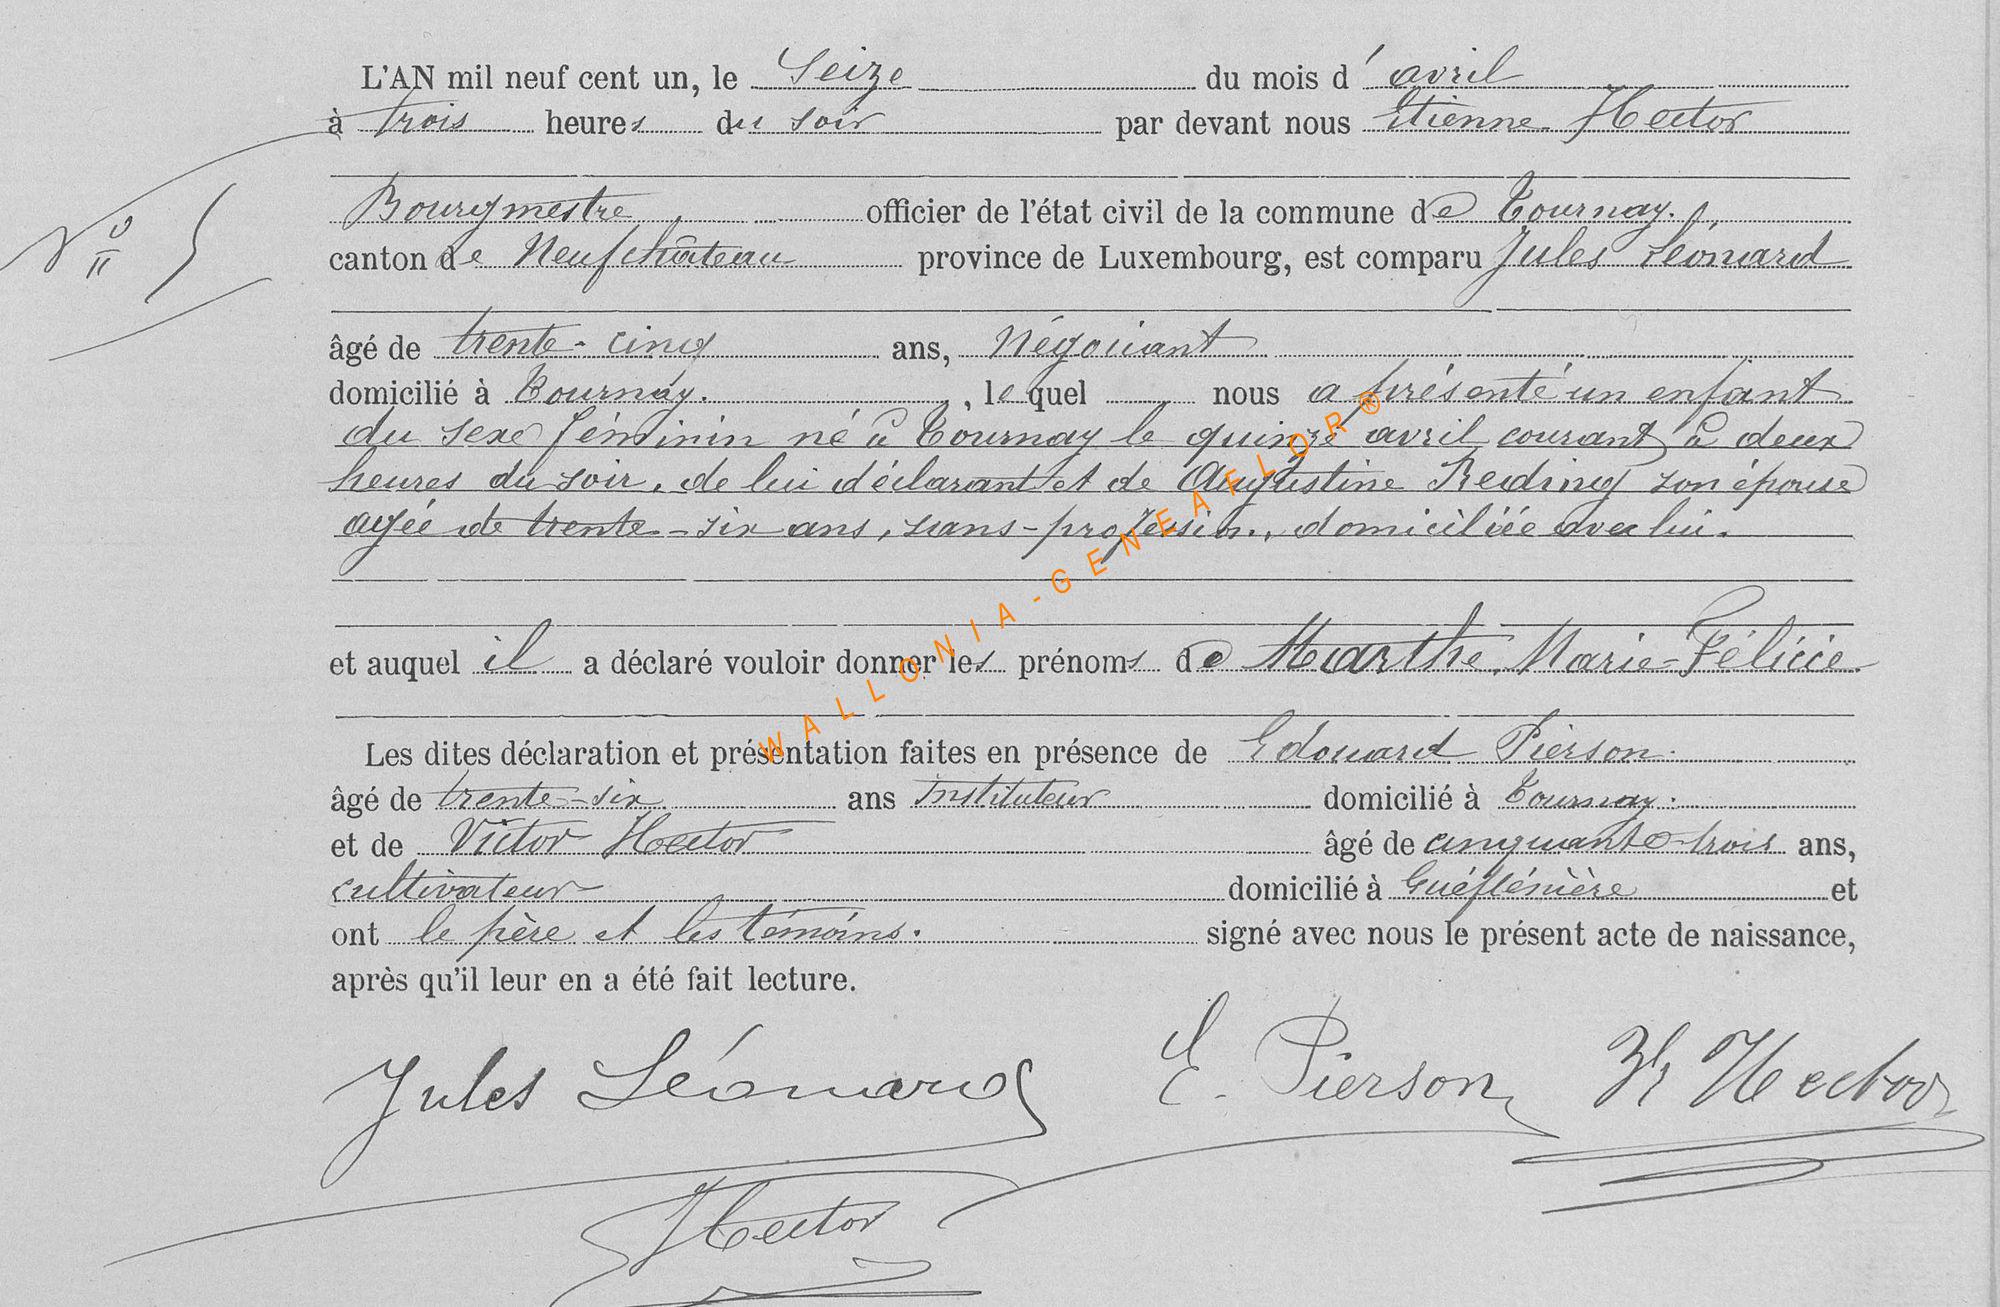 L'AN mil neuf cent un, le Seize du mois d' avril
à trois heures du soir par devant nous Etienne Hector
Bourgmestre officier de l'état civil de la commune de Tournay.
N° 5
canton de Neufchâteau province de Luxembourg, est comparu Jules Léonard
âgé de trente-cinq ans, Négociant
domicilié à Tournay. , lequel nous a présenté un enfant
du sexe féminin né à Tournay le quinze avril courant à deux
heures du soir, de lui déclarant et de Augustine Reding son épouse
agée de trente-six ans, sans-profession, domiciliée avec lui.
et auquel il a déclaré vouloir donner les prénoms de Marthe, Marie-Félicie.
Les dites déclaration et présentation faites en présence de Edouard Pierson
âgé de trente-six ans Instituteur domicilié à Tournay.
et de Victor Hector âgé de cinquante-trois ans,
cultivateur domicilié à et
ont le père et les témoins. signé avec nous le présent acte de naissance,
après qu'il leur en a été fait lecture.
Jules Léonard E. Pierson Hector
Hector
WALLONIA-GENEAFLOR®